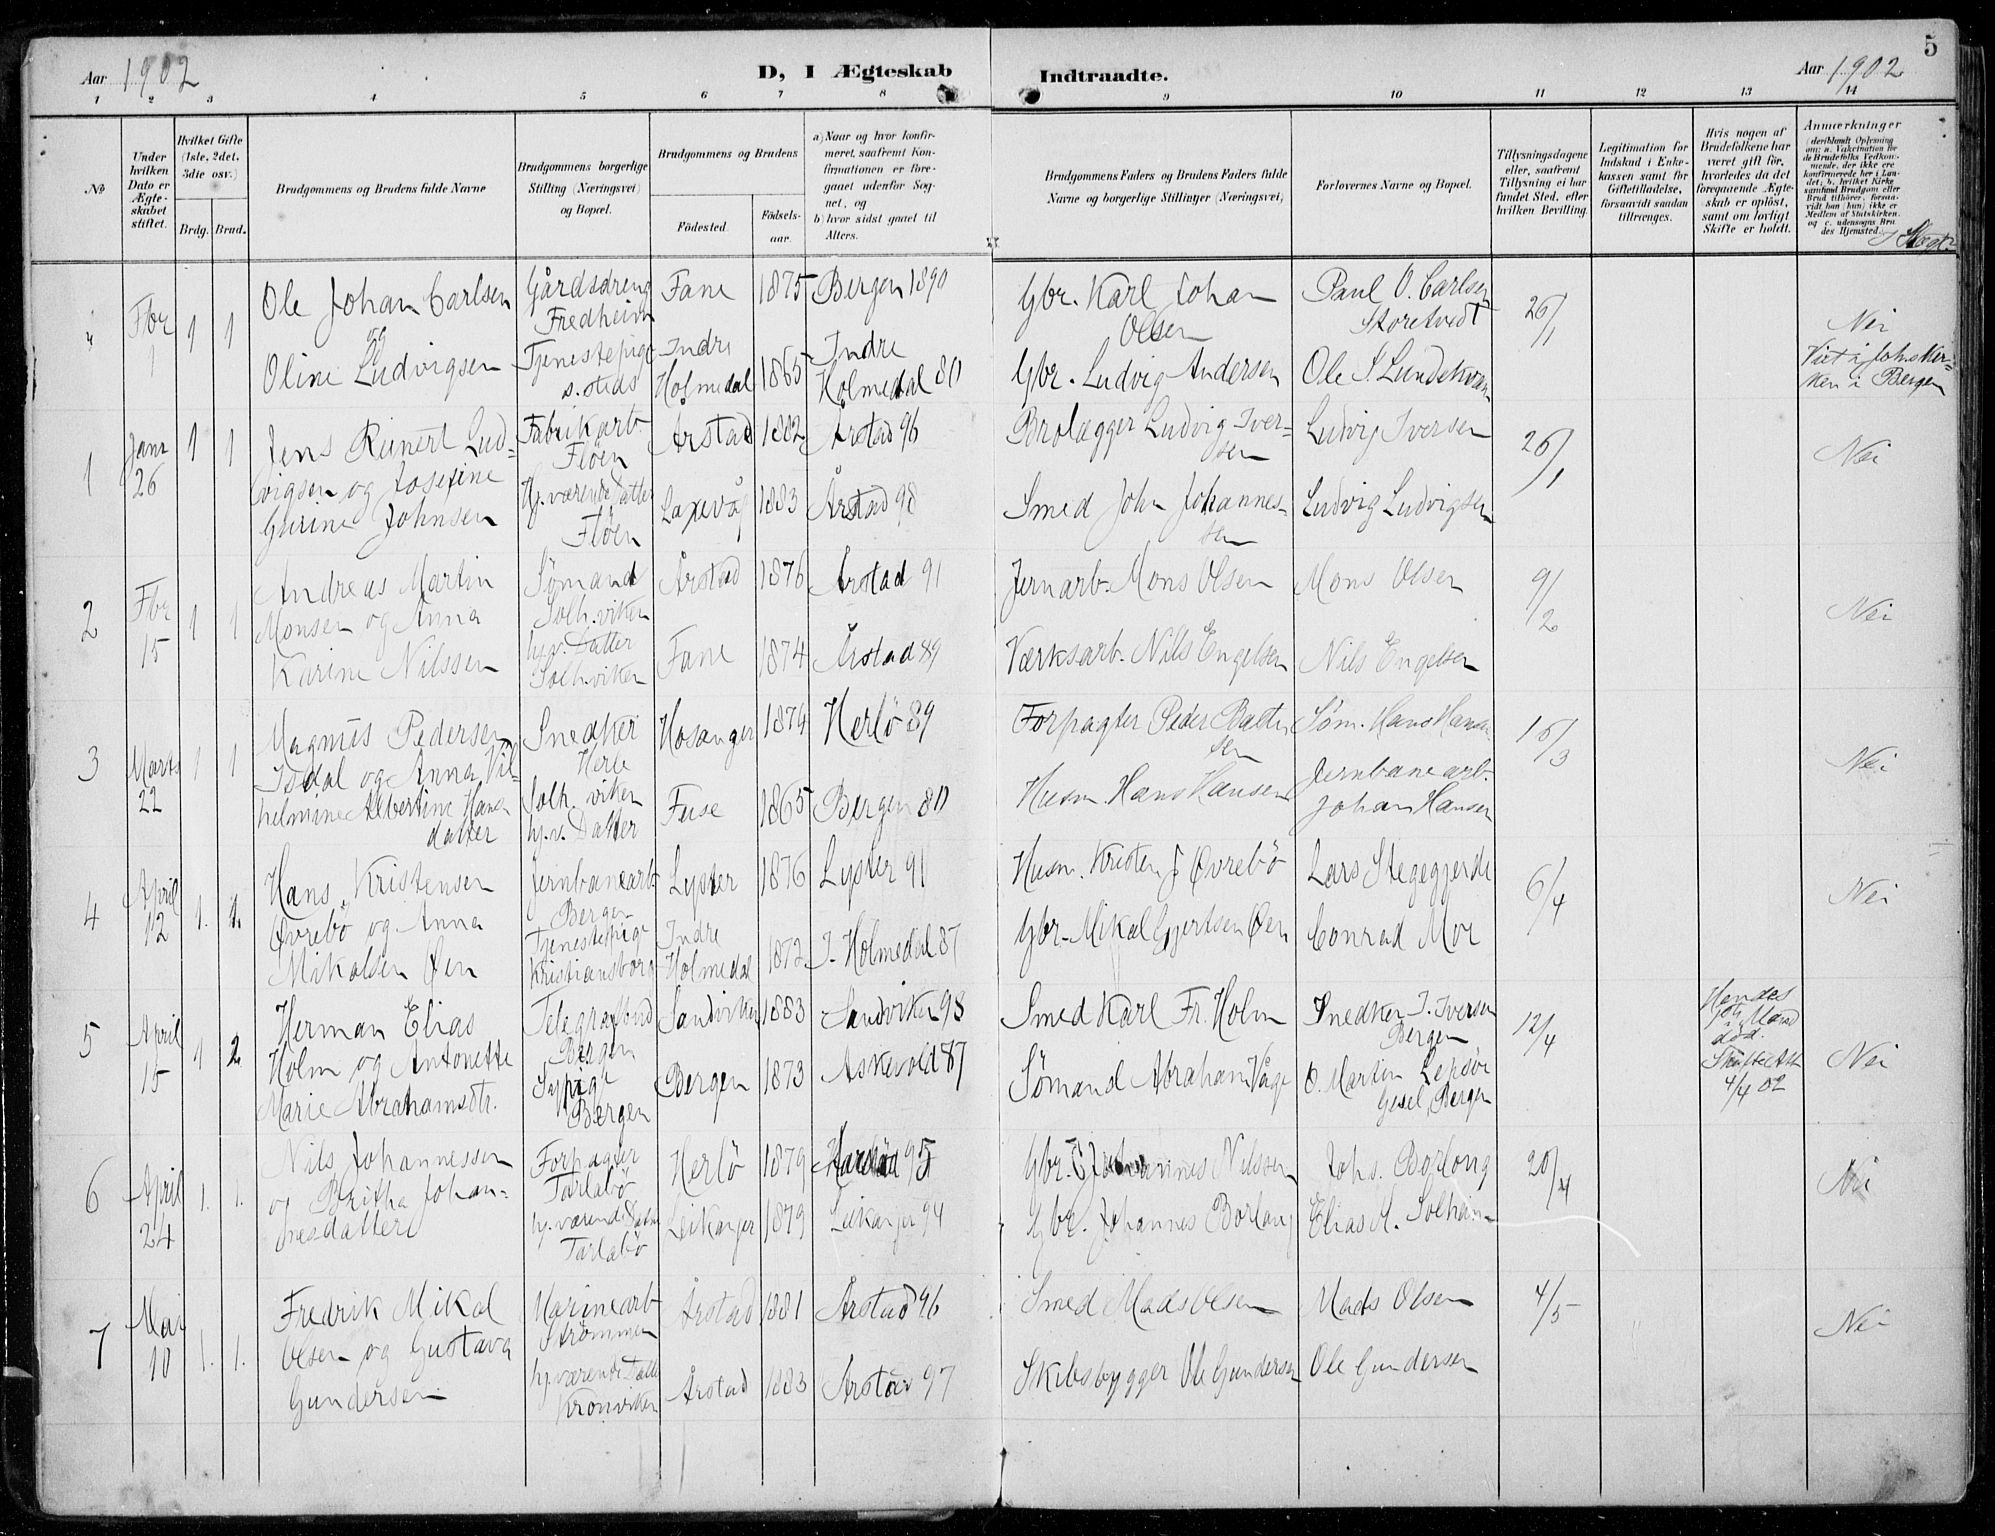 5
Aar 1902
D, I Ægteskab
Indtraadte.
Aar 1902
1 2 3 4 5 6 7 8 9 10 11 12 13 14
No
Under hvilken Dato er Ægteskabet stiftet.
Hvilket Gifte (1ste, 2det, 3die osv.)
Brdg. Brud.
Brudgommens og Brudens fulde Navne
Brudgommens borgerlige Stilling (Næringsvei) og Bopæl.
Brudgommens og Brudens
Fødested.
Fødselsaar.
a) Naar og hvor konfirmeret, saafremt Konfirmationen er foregaaet udenfor Sognet, og
b) hvor sidst gaaet til Alters.
Brudgommens Faders og Brudens Faders fulde Navne og borgerlige Stillinger (Næringsvei)
Forlovernes Navne og Bopæl.
Tillysningsdagene eller, saafremt Tillysning ei har fundet Sted, efter hvilken Bevilling.
Legitimation for Indskud i Enkekassen samt for Giftetilladelse, forsaavidt saadan tiltrænges.
Hvis nogen af Brudefolkene har været gift før, hvorledes da det foregaaende Ægteskab er opløst, samt om lovligt Skifte er holdt.
Anmærkninger
(deriblandt Oplysning om: a. Vakcination for de Brudefolks Vedkommende, der ikke ere konfirmerede her i Landet; b. hvilket Kirkesamfund Brudgom eller Brud tilhører, forsaavidt han (hun) ikke er Medlem af Statskirken. og c. udensogns Brudes Hjemsted.)
I Slægt
" Fbr 1 1 1
Ole Johan Carlsen
og
Oline Ludvigsen
Gårdsdreng
Fredheim
Tjenestepige
s. steds
Fane 1875 Bergen 1890
Indre Holmedal 1865 Indre Holmedal 80
Gbr. Karl Johan
Olsen
Gbr. Ludvig Andersen
Paul O. Carlsen
Storetvedt
Ole S. Lundekvam
26/1
Nei
Viet i Johs Kirken i Bergen
1 Janr 26 1 1
Jens Reinert Lud-
vigsen og Josefine
Gurine Johnsen
Fabrikarb.
Fløen
Hj. værende Datter
Fløen
Årstad 1882 Årstad 96
Laxevåg 1883 Årstad 98
Brolægger Ludvig Iver-
sen
Smed John Johannes-
sen
Ludvig Iversen
Ludvig Ludvigsen
26/1
Nei
2 Fbr 15 1 1
Andreas Martin
Monsen og Anna
Karine Nilssen
Sømand
Solh.viken
hj.v. Datter
Solh.viken
Årstad 1876 Årstad 91
Fane 1874 Årstad 89
Jernarb. Mons Olsen
Værksarb. Nils Engelsen
Mons Olsen
Nils Engelsen
9/2
Nei
3 Marts 22 1 1
Magnus Pedersen
Isdal og Anna Vil-
helmine Albertine Hans
datter
Snedker
Herlø
Solh. viken
hj.v. Datter
Hosanger 1874 Herlö 89
Fuse 1865 Bergen 80
Forpagter Peder Balt
sen
Husm. Hans Hansen
Søm. Hans Hansen
Jernbanearb.
Johan Hansen
16/3
Nei
4 April 12 1. 1.
Hans Kristensen
Øvrebö og Anna
Mikalsen Øen
Jernbanearb.
Bergen
Tjenestepige
Kristiansborg
Lyster 1876 Lyster 91
Indre Holmedal 1872 I. Holmedal 87
Husm. Kristen J Øvrebö
Gbr. Mikal Gjertsen Øen
Lars Stegegjerde
Conrad Moe
6/4
Nei
5 April 15 1 2
Herman Elias
Holm og Antonette
Marie Abrahamsdtr.
Telegrafbud
Bergen
Sypige
Bergen
Sandviken 1883 Sandviken 98
Bergen 1873 Askevold 87
Smed Karl Fr. Holm
Sömand Abraham Våge
Snedker I. Iversen
Bergen
O. Martin Lepsöe
Gesel, Bergen
12/4
Hendes
Mand
död.
Skifte Att
4/4 02
Nei
6 April 24 1. 1.
Nils Johannessen
og Britha Johan-
nesdatter
Forpagter
Tarlebö
hj. værende Datter
Tarlebö
Herlö 1879 95
Leikanger 1879 Leikanger 94
Gbr. Johannes Nilssen
Gbr. Johannes Borlaug
Johs. Borlaug
Elias A. Solhein
20/4
Nei
7 Mai 10 1. 1.
Fredrik Mikal
Olsen og Gustava
Gundersen
Marinearb
Strømmen
hj. værende Datter
Kronviken
Årstad 1881 Årstad 96
Årstad 1883 Årstad 97
Smed Mads Olsen
Skibsbygger Ole Gundersen
Mads Olsen
Ole Gundersen
4/5
Nei